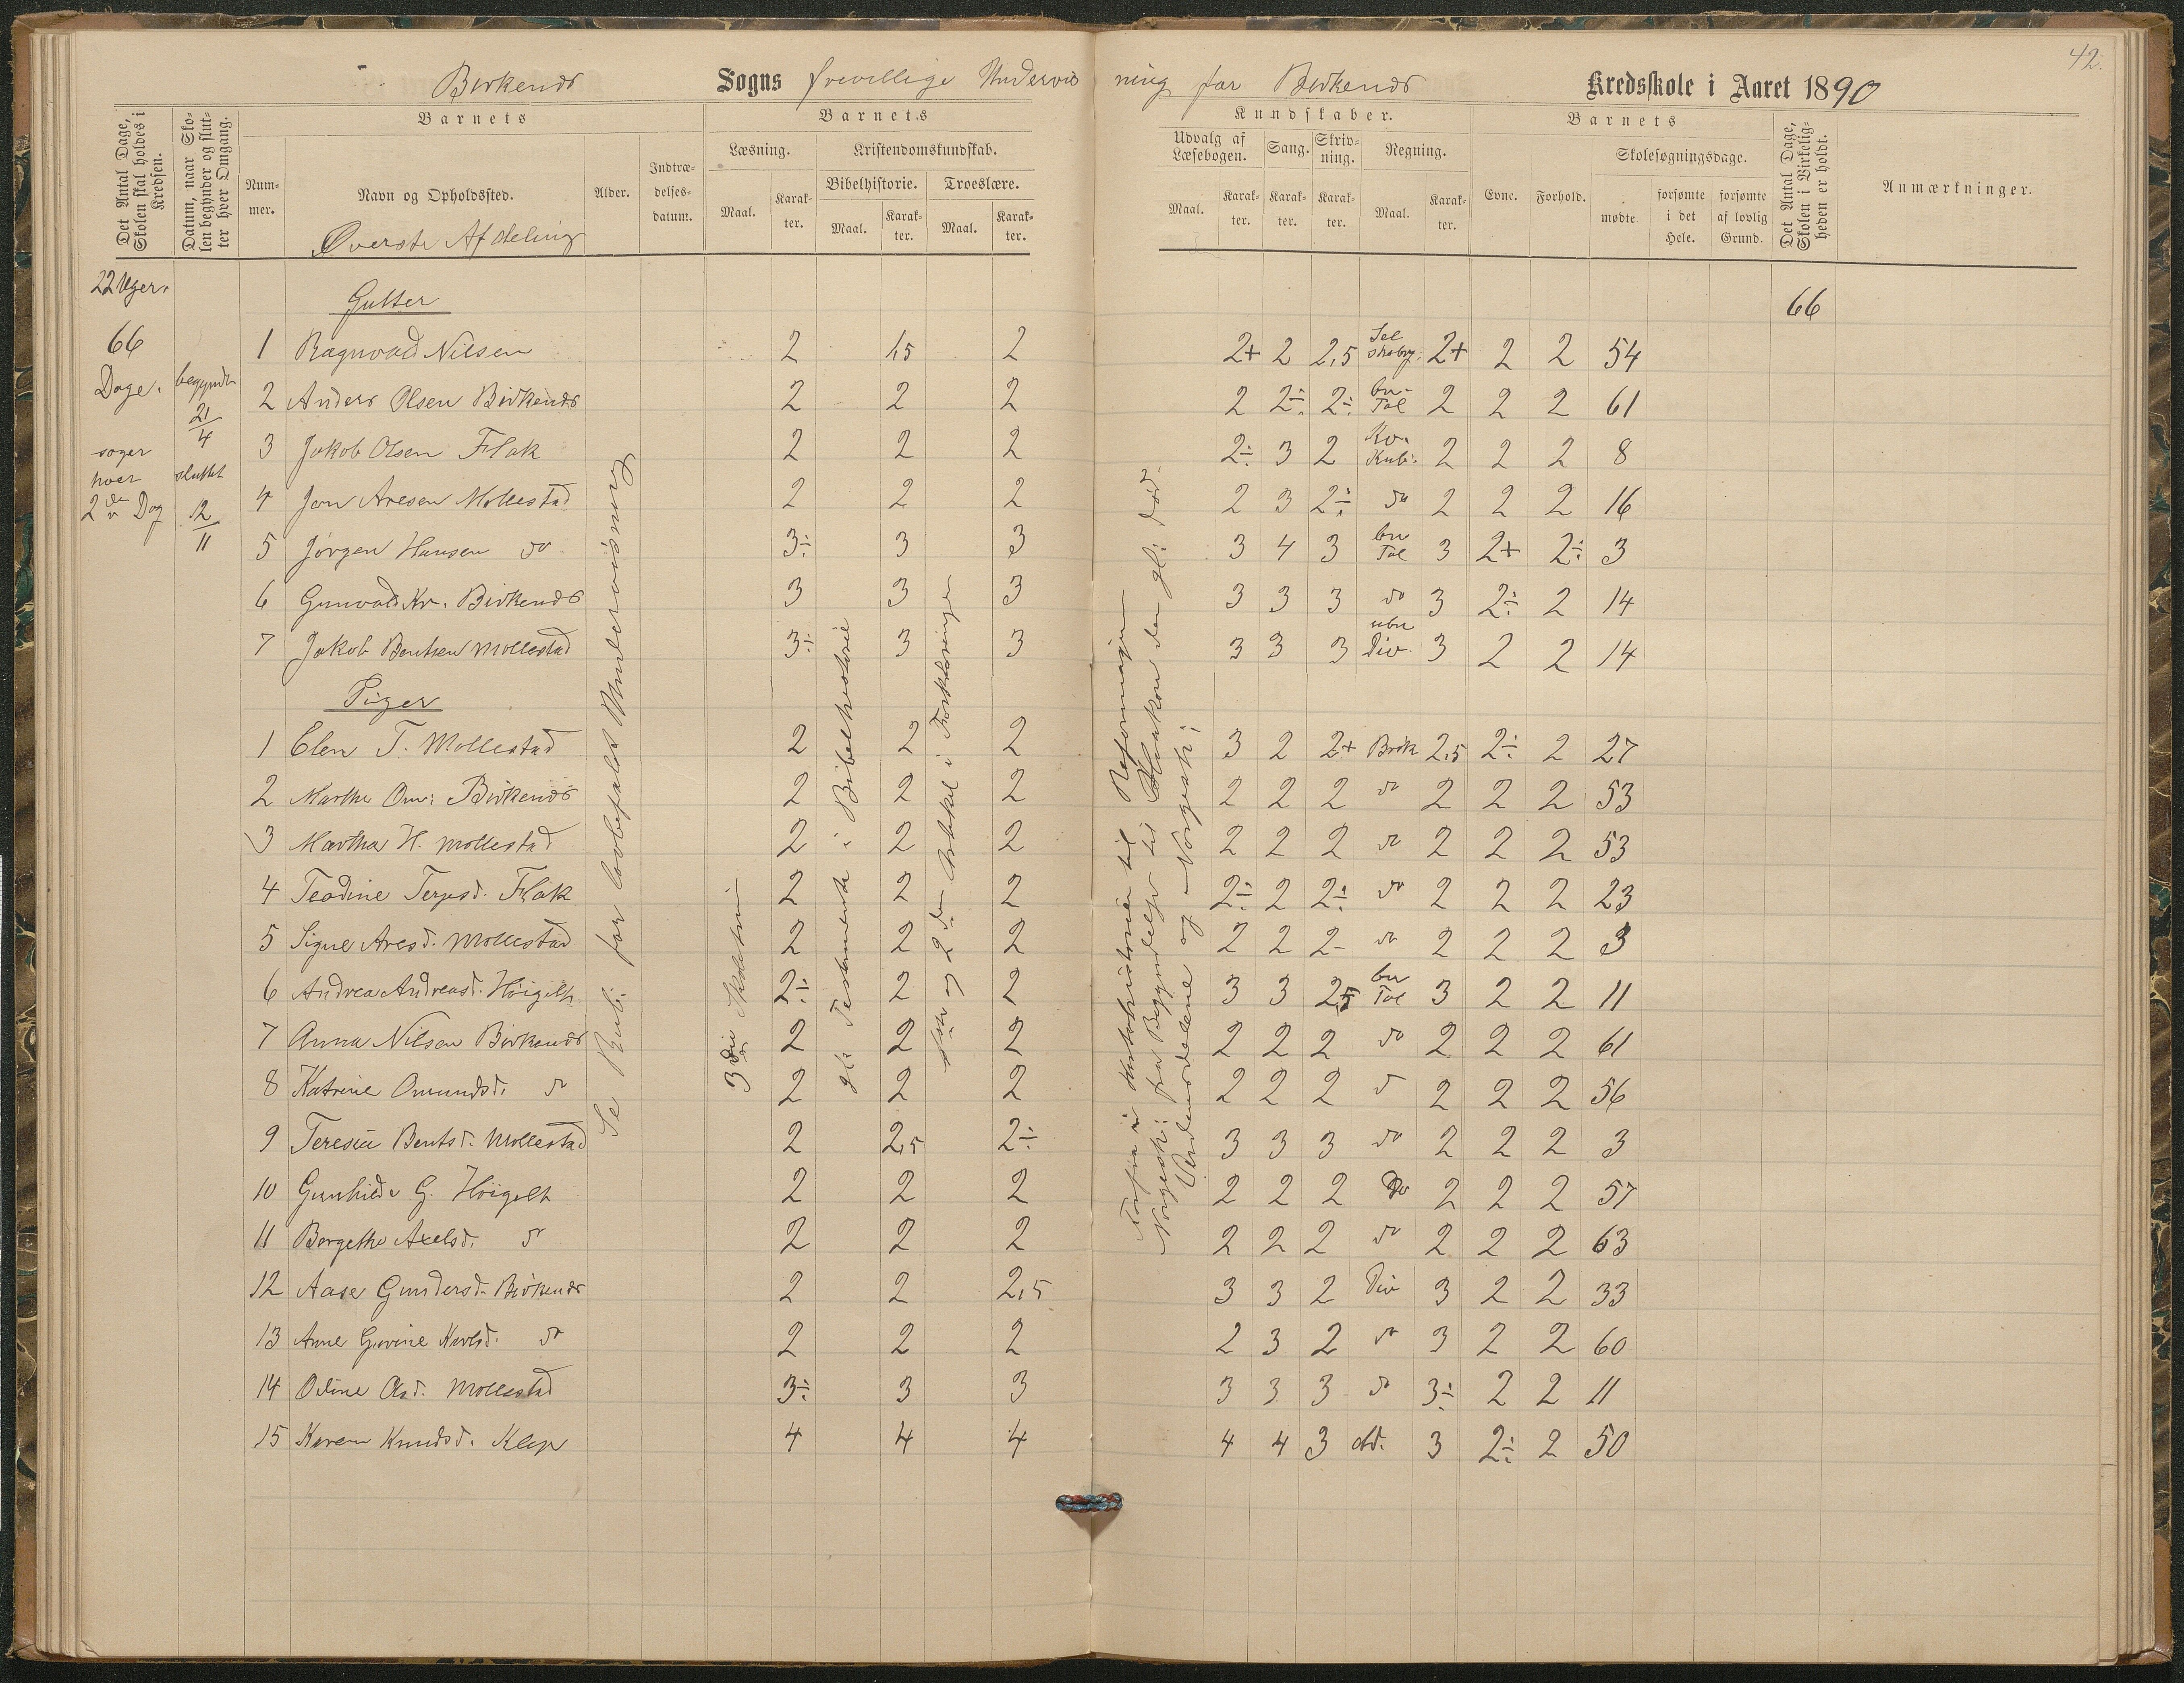 42.
Birkenæs Sogns frivillige Undervisning for Birkenæs Kredsskole i Aaret 1890
Det Antal Dage, Skolen skal holdes i Kredsen.
Datum, naar Skolen begynder og slutter hver Omgang.
Barnets
Nummer.
Navn og Opholdssted.
Øverste Afdeling
Alder.
Indtrædelsesdatum.
Barnets
Læsning.
Maal. Karakter.
Kristendomskundskab.
Bibelhistorie. Troeslære.
Maal. Karakter. Maal. Karakter.
Kundskaber.
Udvalg af Læsebogen. Sang. Skrivning. Regning.
Maal. Karakter. Karakter. Karakter. Maal. Karakter.
Barnets
Evne. Forhold.
Skolesøgningsdage.
mødte forsømte i det Hele. forsømte af lovlig Grund.
Det Antal Dage, Skolen i Virkeligheden er holdt.
Anmærkninger.
22 Uger.
66
Dage.
søger
hver
2den Dag
begyndt
21/4
sluttet
12/11
66
Gutter
1 Ragnvald Nilsen 2 1,5 2 2+ 2 2,5 Selskabrg: 2+ 2 2 54
2 Anders Olsen Birkenæs 2 2 2 2 2÷ 2÷ bn Tal 2 2 2 61
3 Jakob Olsen Flak 2 2 2 2÷ 3 2 Kv. Kub. 2 2 2 8
4 Jon Aresen Mollestad 2 2 2 2 3 2÷ do 2 2 2 16
5 Jørgen Hansen do 3÷ 3 3 3 4 3 bn Tal 3 2+ 2÷ 3
6 Gunvald Kr. Birkenæs 3 3 3 3 3 3 do 3 2÷ 2 14
7 Jakob Bentsen Mollestad 3÷ 3 3 3 3 3 ubn Div. 3 2 2 14
Piger
1 Elen T. Mollestad 2 2 2 3 2 2+ Brøk 2,5 2÷ 2 27
2 Marthe Om: Birkenæs 2 2 2 2 2 2 do 2 2 2 53
3 Martha H. Mollestad 2 2 2 2 2 2 do 2 2 2 53
4 Teodine Terjesd. Flak 2 2 2 2÷ 2 2÷ do 2 2 2 23
5 Signe Aresd. Mollestad 2 2 2 2 2 2- do 2 2 2 3
6 Andrea Andreasd. Høigelt 2÷ 2 2 3 3 2,5 bn Tal 3 2 2 11
7 Anna Nilsen Birkenæs 2 2 2 2 2 2 do 2 2 2 61
8 Katrine Omundsd. do 2 2 2 2 2 2 do 2 2 2 56
9 Teresia Bentsd. Mollestad 2 2,5 2÷ 3 3 3 do 2 2 2 3
10 Gunhilde G. Høigelt 2 2 2 2 2 2 Do 2 2 2 57
11 Bergethe Axelsd. do 2 2 2 2 2 2 do 2 2 2 63
12 Aase Gundersd. Birkenæs 2 2 2,5 3 3 2 Div 3 2 2 33
13 Anne Gurine Karlsd. do 2 2 2 2 3 2 do 3 2 2 60
14 Odine Olsd. Mollestad 3÷ 3 3 3 3 3 do 3÷ 2 2 11
15 Karen Knudsd. Klep 4 4 4 4 4 3 do. 3 2÷ 2 50
Se Rub: for lovbefalet Undervisning
3die Skoletrin
gl. Testamente i Bibelhistorie
1ste og 2den Artikkel i Forklaringen
Forfra i Kirkehistorien til Reformasjonen
Norgesh: fra Begyndelse til Haakon den gl: død.
Verdensdelene og Norgesk: